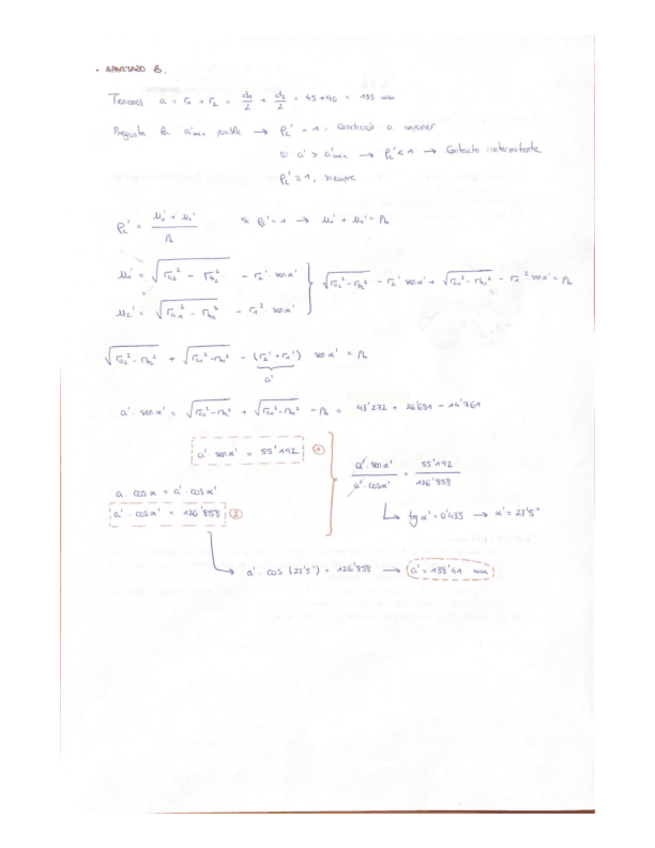 • APARTADO B.
Tenemos a = r₁ + r₂ = d₁/2 + d₂/2 = 45+90 = 135 mm
Pregunta la a'max posible → ρc' = 1, condición a imponer
Si a' > a'max → ρc' < 1 → Contacto intermitente
ρc' ≥ 1, siempre
ρc' = (u₁' + u₂')/Pb Si ρc' = 1 → u₁' + u₂' = Pb
u₁' = √(ra₂² - rb₂²) - r₂' · sen α'
u₂' = √(ra₁² - rb₁²) - r₁' · sen α' } √(ra₂² - rb₂²) - r₂' · sen α' + √(ra₁² - rb₁²) - r₁' · sen α' = Pb
√(ra₂² - rb₂²) + √(ra₁² - rb₁²) - (r₂' + r₁') sen α' = Pb
a'
a' · sen α' = √(ra₂² - rb₂²) + √(ra₁² - rb₁²) - Pb = 43'272 + 26'681 - 14'761
a' · sen α' = 55'192 ①
a'· sen α' / a'· cos α' = 55'192 / 126'858
a · cos α = a' · cos α'
a' · cos α' = 126'858 ②
↳ tg α' = 0'435 → α' = 23'5°
a' · cos (23'5°) = 126'858 → a' = 138'41 mm